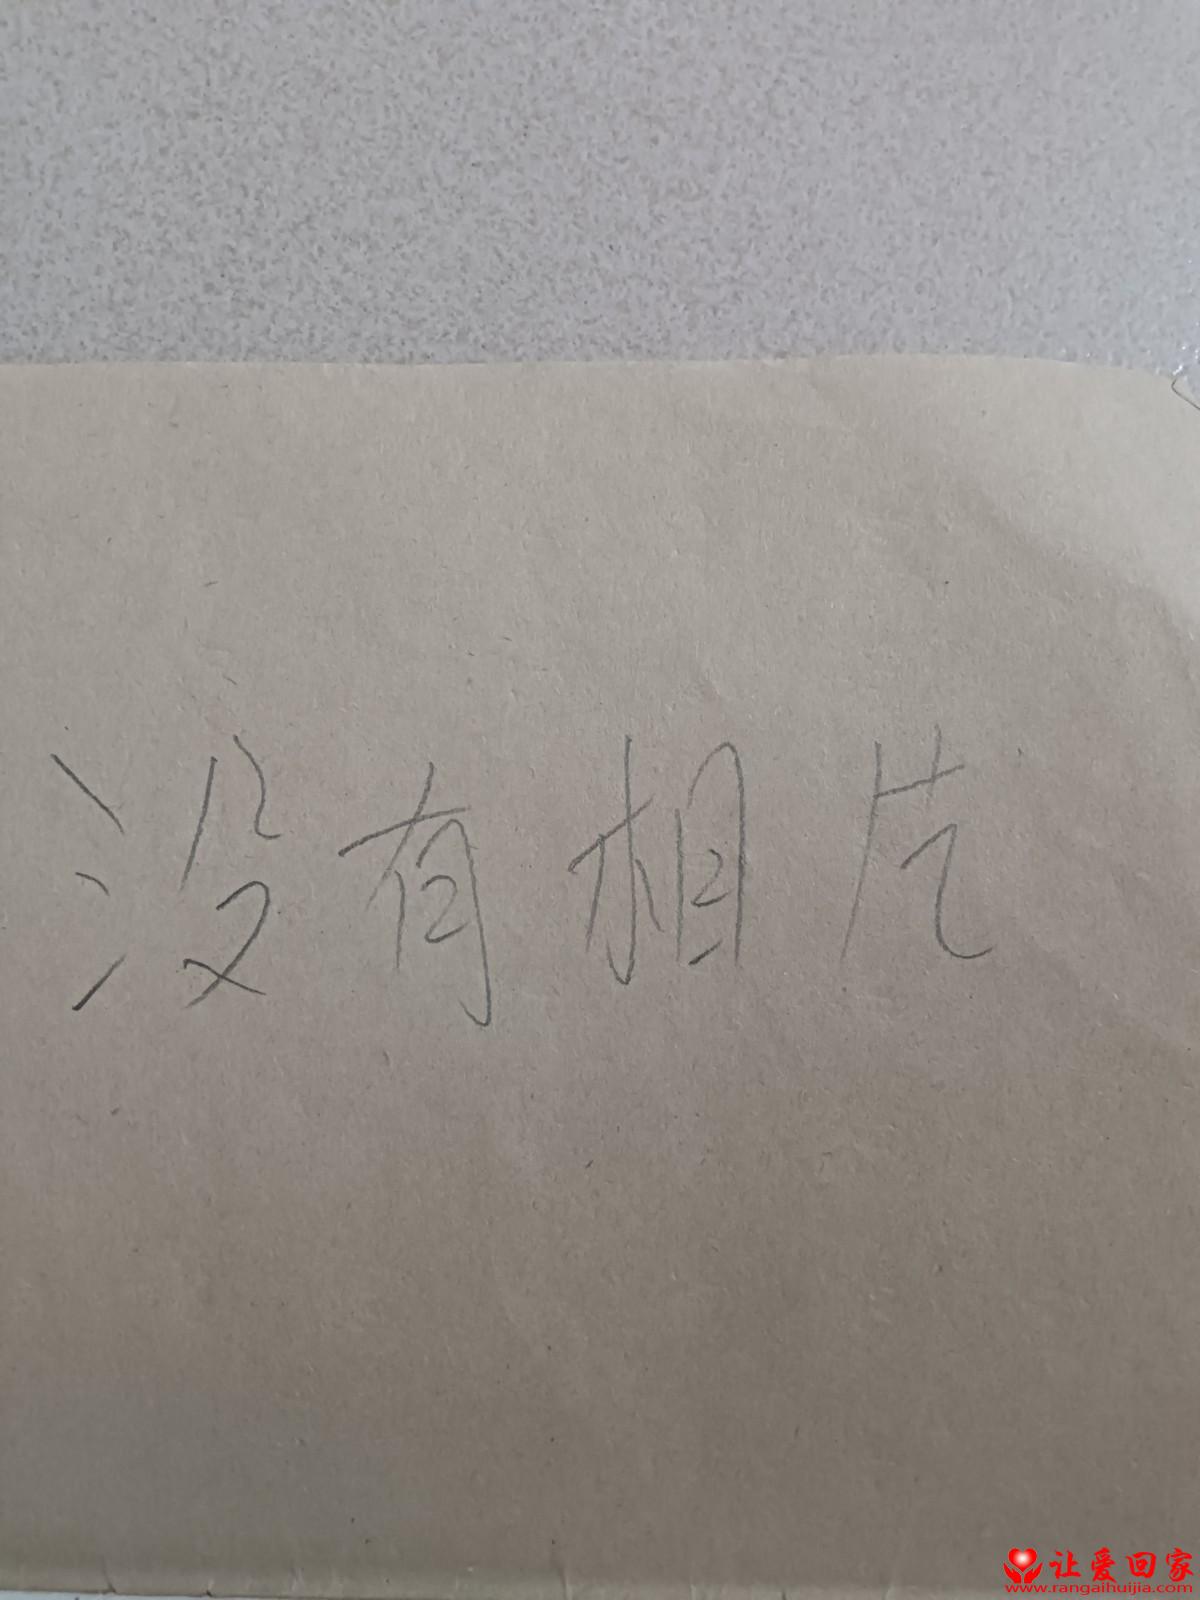 没有相片
让爱回家
www.rangaihuijia.com